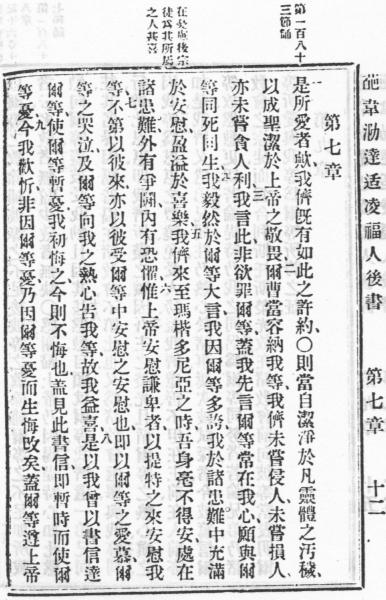 葩韋泐達适凌福人後書 第七章 十二
第一百八十
三節誦
徒為其所屬
之人其喜
第七章
一是所愛者歟我儕既有如此之許約〇則當自潔淨於凡靈體之汚穢、
以成聖潔於上帝之敬畏、二爾曹當容納我等、我儕未嘗侵人、未嘗損人、
亦未嘗食人利、三我言此非欲罪爾等、蓋我先言爾等當在我心、願與爾
等同死同生、四我毅然於爾等大言、我因爾等多誇、我於諸患難中充滿
於安慰、盈溢於喜樂、五我儕來至瑪楷多尼亞之時、吾身毫不得安、處在
諸患難、外有爭鬪、內有恐懼、六惟上帝安慰謙卑者、以提特之來安慰我
等、七不第以彼來、亦以彼受爾等中安慰之安慰也、即以爾等之愛慕、爾
等之哭泣、及爾等向我之熱心告我等、故我益喜、八是以我曾以書信達
爾等、使爾等暫憂、我初悔之、今則不悔也、盖見此書信、即暫時而使爾
等憂、九今我歡忻、非因爾等憂、乃因爾等憂而生悔改矣、蓋爾等遵上帝